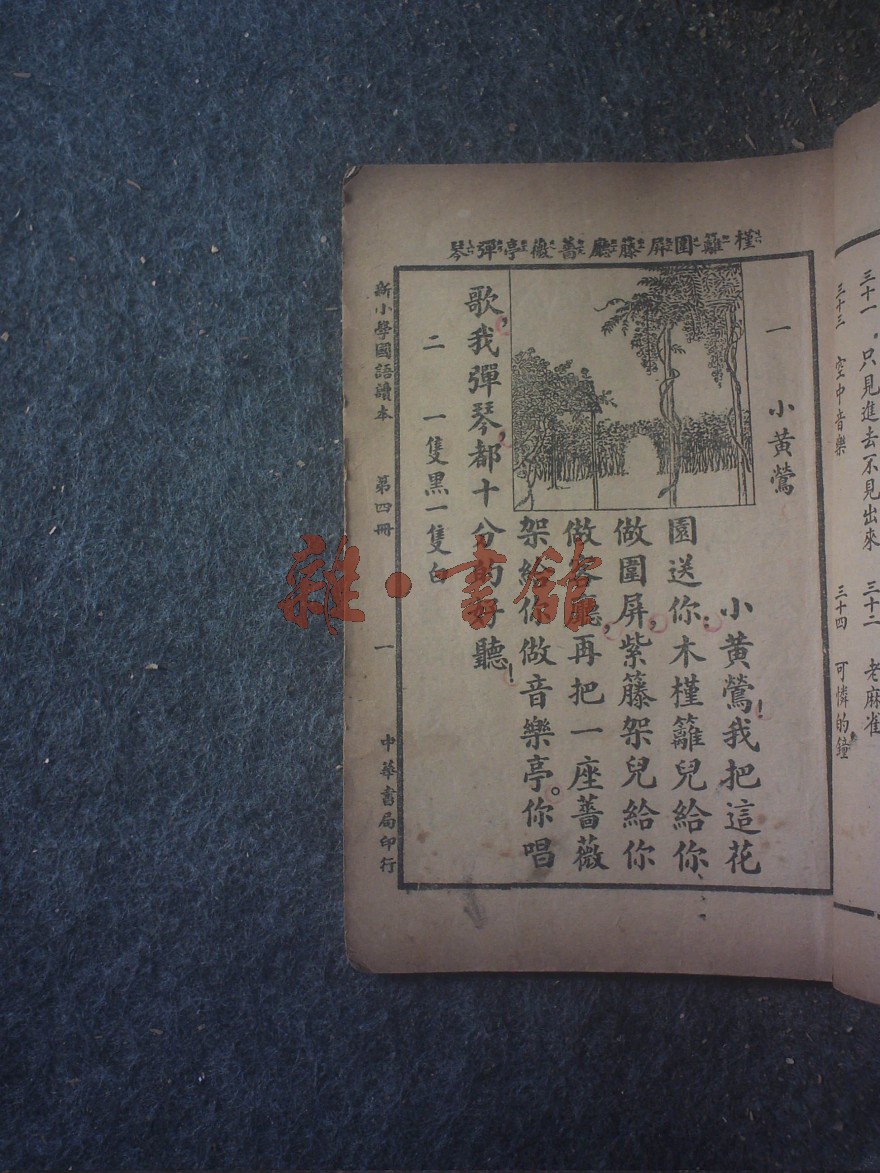 三十一 只見進去不見出來 三十二 老麻雀
三十三 空中音樂 三十四 可憐的鐘
槿籬圍屏藤廳薔薇亭彈琴
一 小黃鶯
小黃鶯!我把這花
園送你;木槿籬兒給你
做圍屏,紫籐架兒給你
做客廳,再把一座薔薇
架給你做音樂亭。你唱
歌,我彈琴,都十分的好聽!
二 一隻黑一隻白
新小學國語讀本 第四冊 一 中華書局印行
雜·書館